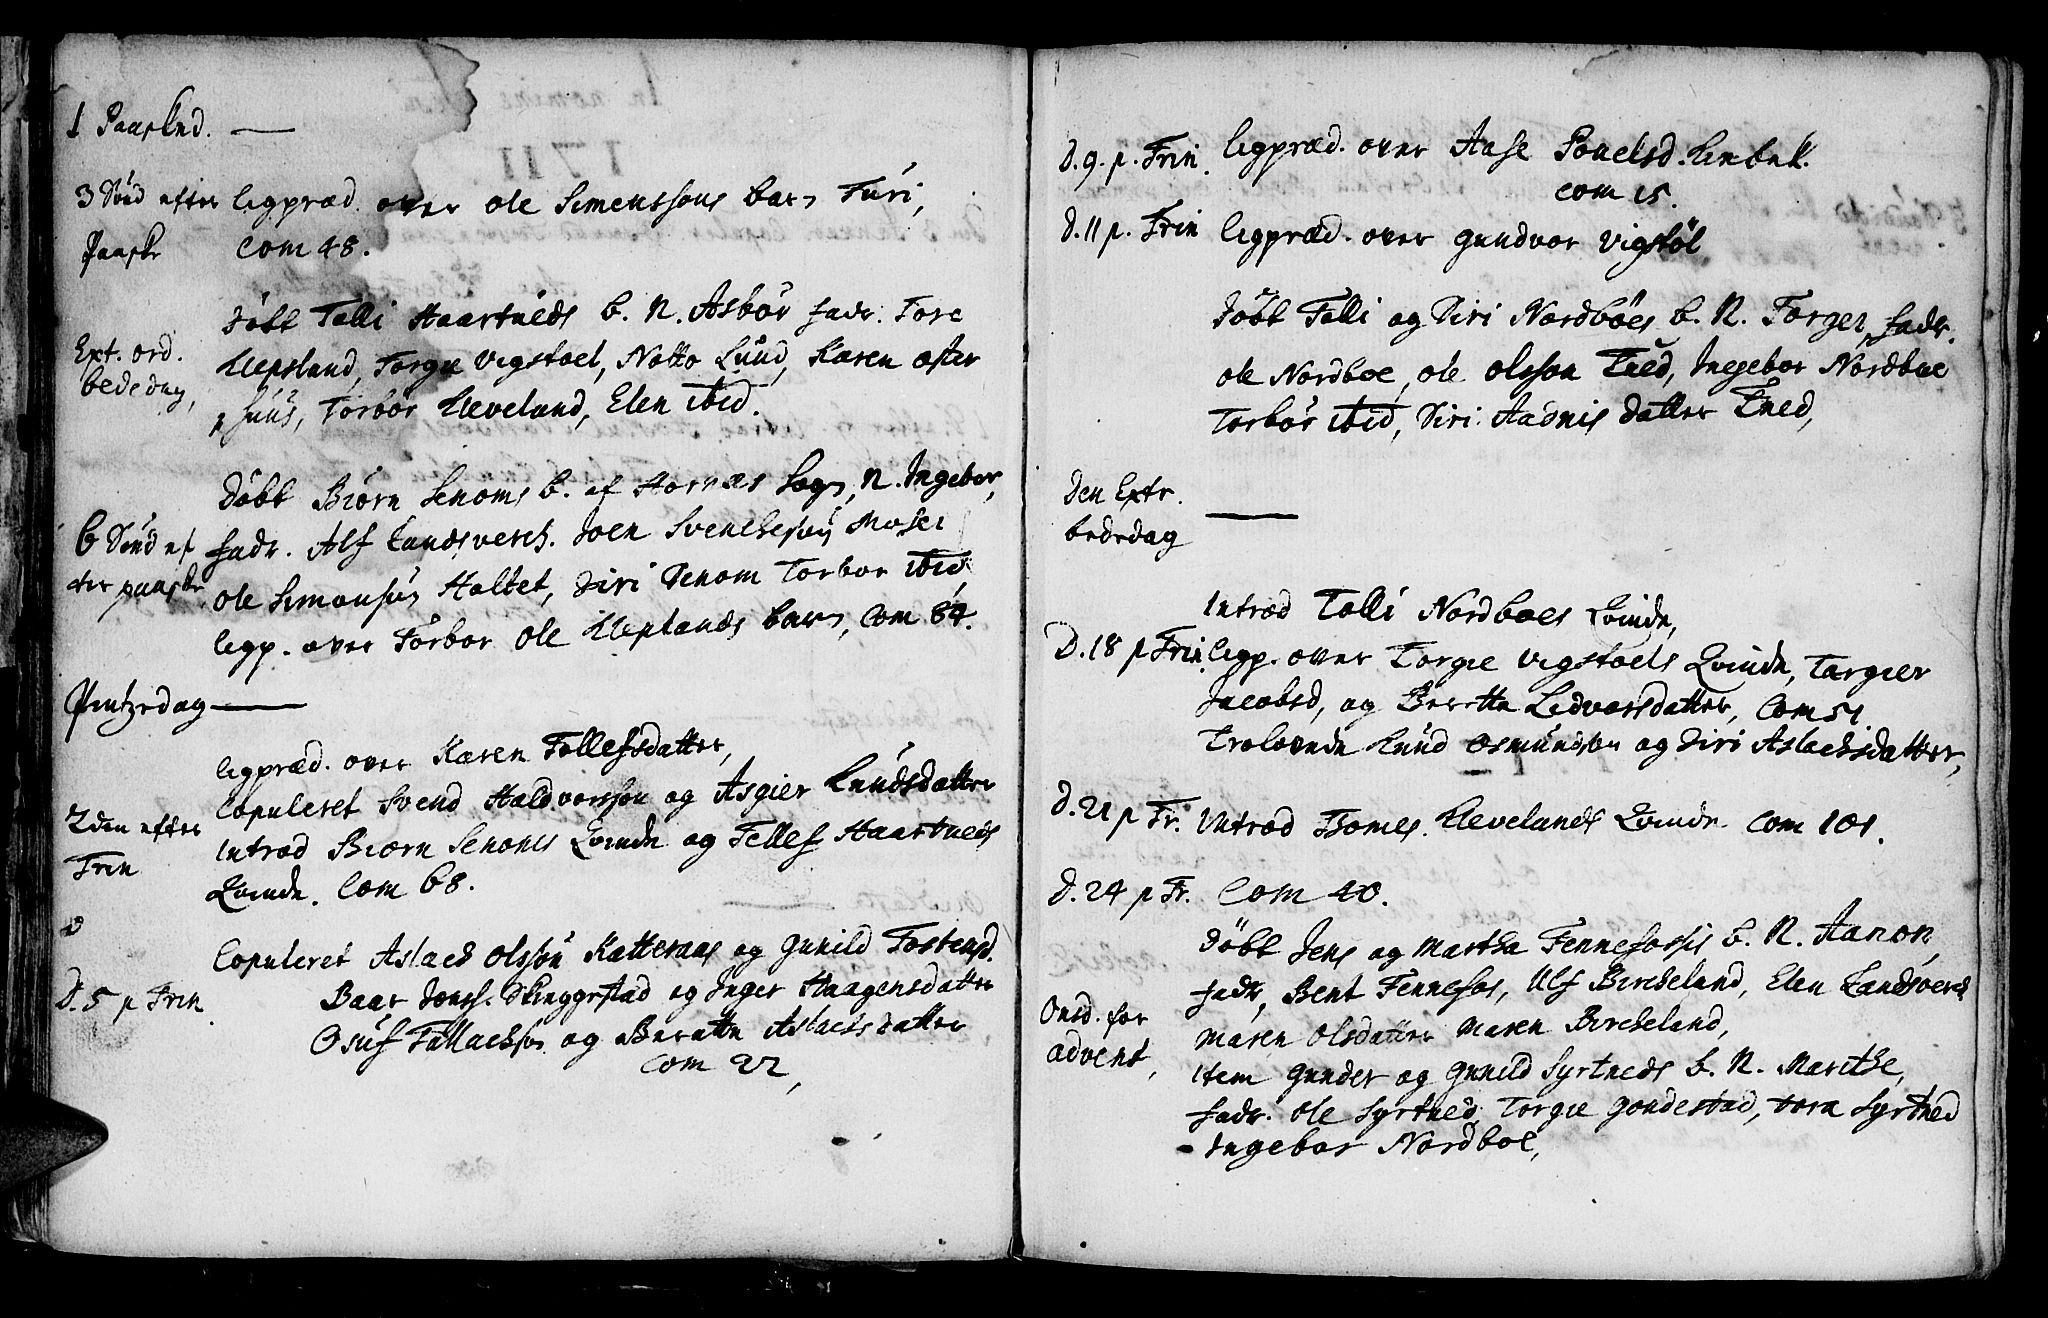 1 Paasked. —
3 Sönd efter ligpræd. over ole Simenssöns barn Turi,
Paaske Com 48.
Döbt Tolli Haartveds b. N. Asbör fadr. Tore
Ext. ord. Uepsland, Torgie Vigstoel, Notto Lund, Karen ofter
bededag, huus, Torbör Kleveland, Elen ibid.
Döbt Biörn Senoms b. af Hornæs Sogn, N. Ingebor,
6 Sönd ef fadr. Alf Landsverch. Joen Svenchesön Mosei
ter paaske ole Simonsön Haltet, Siri Senom Torbor ibid,
ligp. over Torbor ole Uepslands barn, Com 84.
Pintzedag —
ligpræd. over Karen Tollefsdatter,
Copuleret Svend Haldvorsson og Asgier Knudsdatter
2den efter Introd Biörn Senoms Qvinde og Tellef Haartveds
Trin Qvinde. Com 68.
Copuleret Aslach Olssön Katteraas og Gunild Tostensd.
D. 5 p Trin. Baar Jonss. Skeggestad og Inger Haagensdatter
Osuf Tallachsön og Beratte Aslachsdatter
Com 22,
D. 9. p. Trin. ligpræd. over Aase Povelsd. Birkenk.
com 15.
D. 11 p. Trin ligpræd. over Gundvor Vigstöl
Döbt Tolli og Siri Nordböes b. N. Torger, fadr.
ole Nordboe, ole Olsson Tved, Ingebor Nordboe
Torbör ibid, Siri Aadnis datter Tved,
Den Extr.
bededag —
Introd Tolli Nordboes Qvinde,
D. 18 p Trin. ligp. over Torgie Vigstoels Qvinde, Targier
Jacobsd, og Beretta Ledvorsdatter, Com 51.
Trolovede Knud Osmundsön og Siri Aslachsdatter,
D. 21 p Tr. Introd Tomes Klevelands Qvinde Com 101.
D. 24 p Tr. Com 40.
Döbt Jens og Martha Fennefossis b. N. Aanon,
fadr, Bent Fennefos, Ulf Birkeland, Elen Landsverch
Onsd. for Maren Olsdatter Maren Birckeland,
advent, Item Gunder og Gunild Syrtveds b. N. Marithe,
fadr. Ole Syrtved, Torgie Gondestad, Tora Syrtved
Ingebor Nordboe,